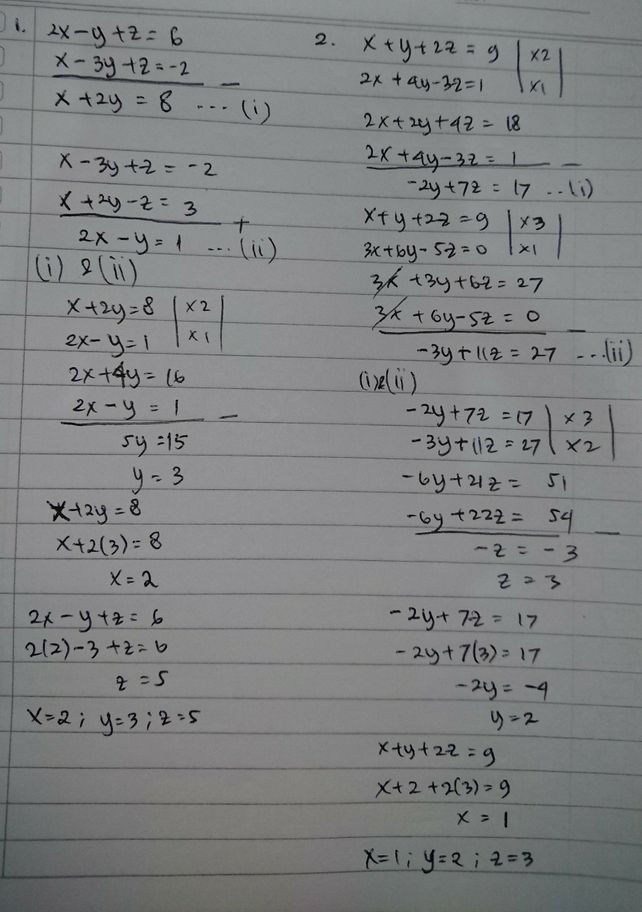 1. 2x - y + z = 6
x - 3y + z = -2 -
x + 2y = 8 .... (i)
x - 3y + z = -2
x + 2y - z = 3 +
2x - y = 1 ... (ii)
(i) & (ii)
x + 2y = 8 | x2 |
2x - y = 1 | x1 |
2x + 4y = 16
2x - y = 1 -
5y = 15
y = 3
x + 2y = 8
x + 2(3) = 8
x = 2
2x - y + z = 6
2(2) - 3 + z = 6
z = 5
x = 2 ; y = 3 ; z = 5
2. x + y + 2z = 9 | x2 |
2x + 4y - 3z = 1 | x1 |
2x + 2y + 4z = 18
2x + 4y - 3z = 1 -
-2y + 7z = 17 ..(i)
x + y + 2z = 9 | x3 |
3x + 6y - 5z = 0 | x1 |
3x + 3y + 6z = 27
3x + 6y - 5z = 0 -
-3y + 11z = 27 ...(ii)
(i)&(ii)
-2y + 7z = 17 | x3 |
-3y + 11z = 27 | x2 |
-6y + 21z = 51
-6y + 22z = 54 -
-z = -3
z = 3
-2y + 7z = 17
-2y + 7(3) = 17
-2y = -4
y = 2
x + y + 2z = 9
x + 2 + 2(3) = 9
x = 1
x = 1 ; y = 2 ; z = 3